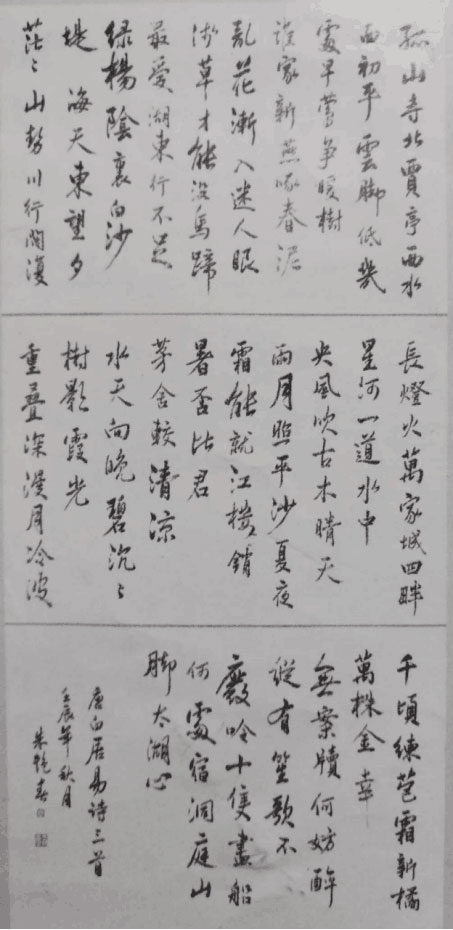 孤山寺北賈亭西水
面初平雲脚低幾
處早鶯争暖樹
誰家新燕啄春泥
亂花漸入迷人眼
淺草才能没馬蹄
最愛湖東行不足
绿楊陰裏白沙
堤 海天東望夕
茫々山勢川行闊復
長燈火萬家城四畔
星河一道水中
央風吹古木晴天
雨月照平沙夏夜
霜能就江樓銷
暑否比君
茅舍較清涼
水天向晚碧沉々
樹影霞光
重疊深漫月冷波
千頃練苞霜新橘
萬株金幸
無案牘何妨醉
縱有笙歌不
廢吟十隻畫船
何處宿洞庭山
脚太湖心
唐白居易诗三首
壬辰年秋月
朱